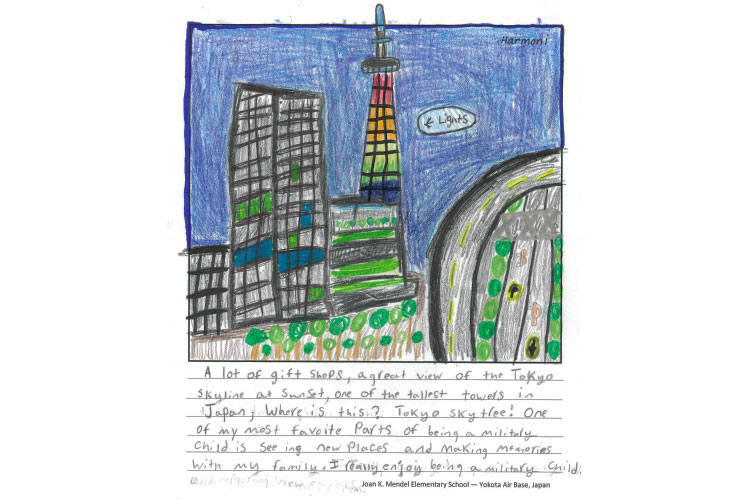 Harmoni
← Lights
A lot of gift shops, a great view of the Tokyo
skyline at sunset, one of the tallest towers in
Japan, Where is this? Tokyo skytree! One
of my most favoite Parts of being a military
child is seeing new Places and making memories
with my family. I really enjoy being a military child
new
Joan K. Mendel Elementary School — Yokota Air Base, Japan